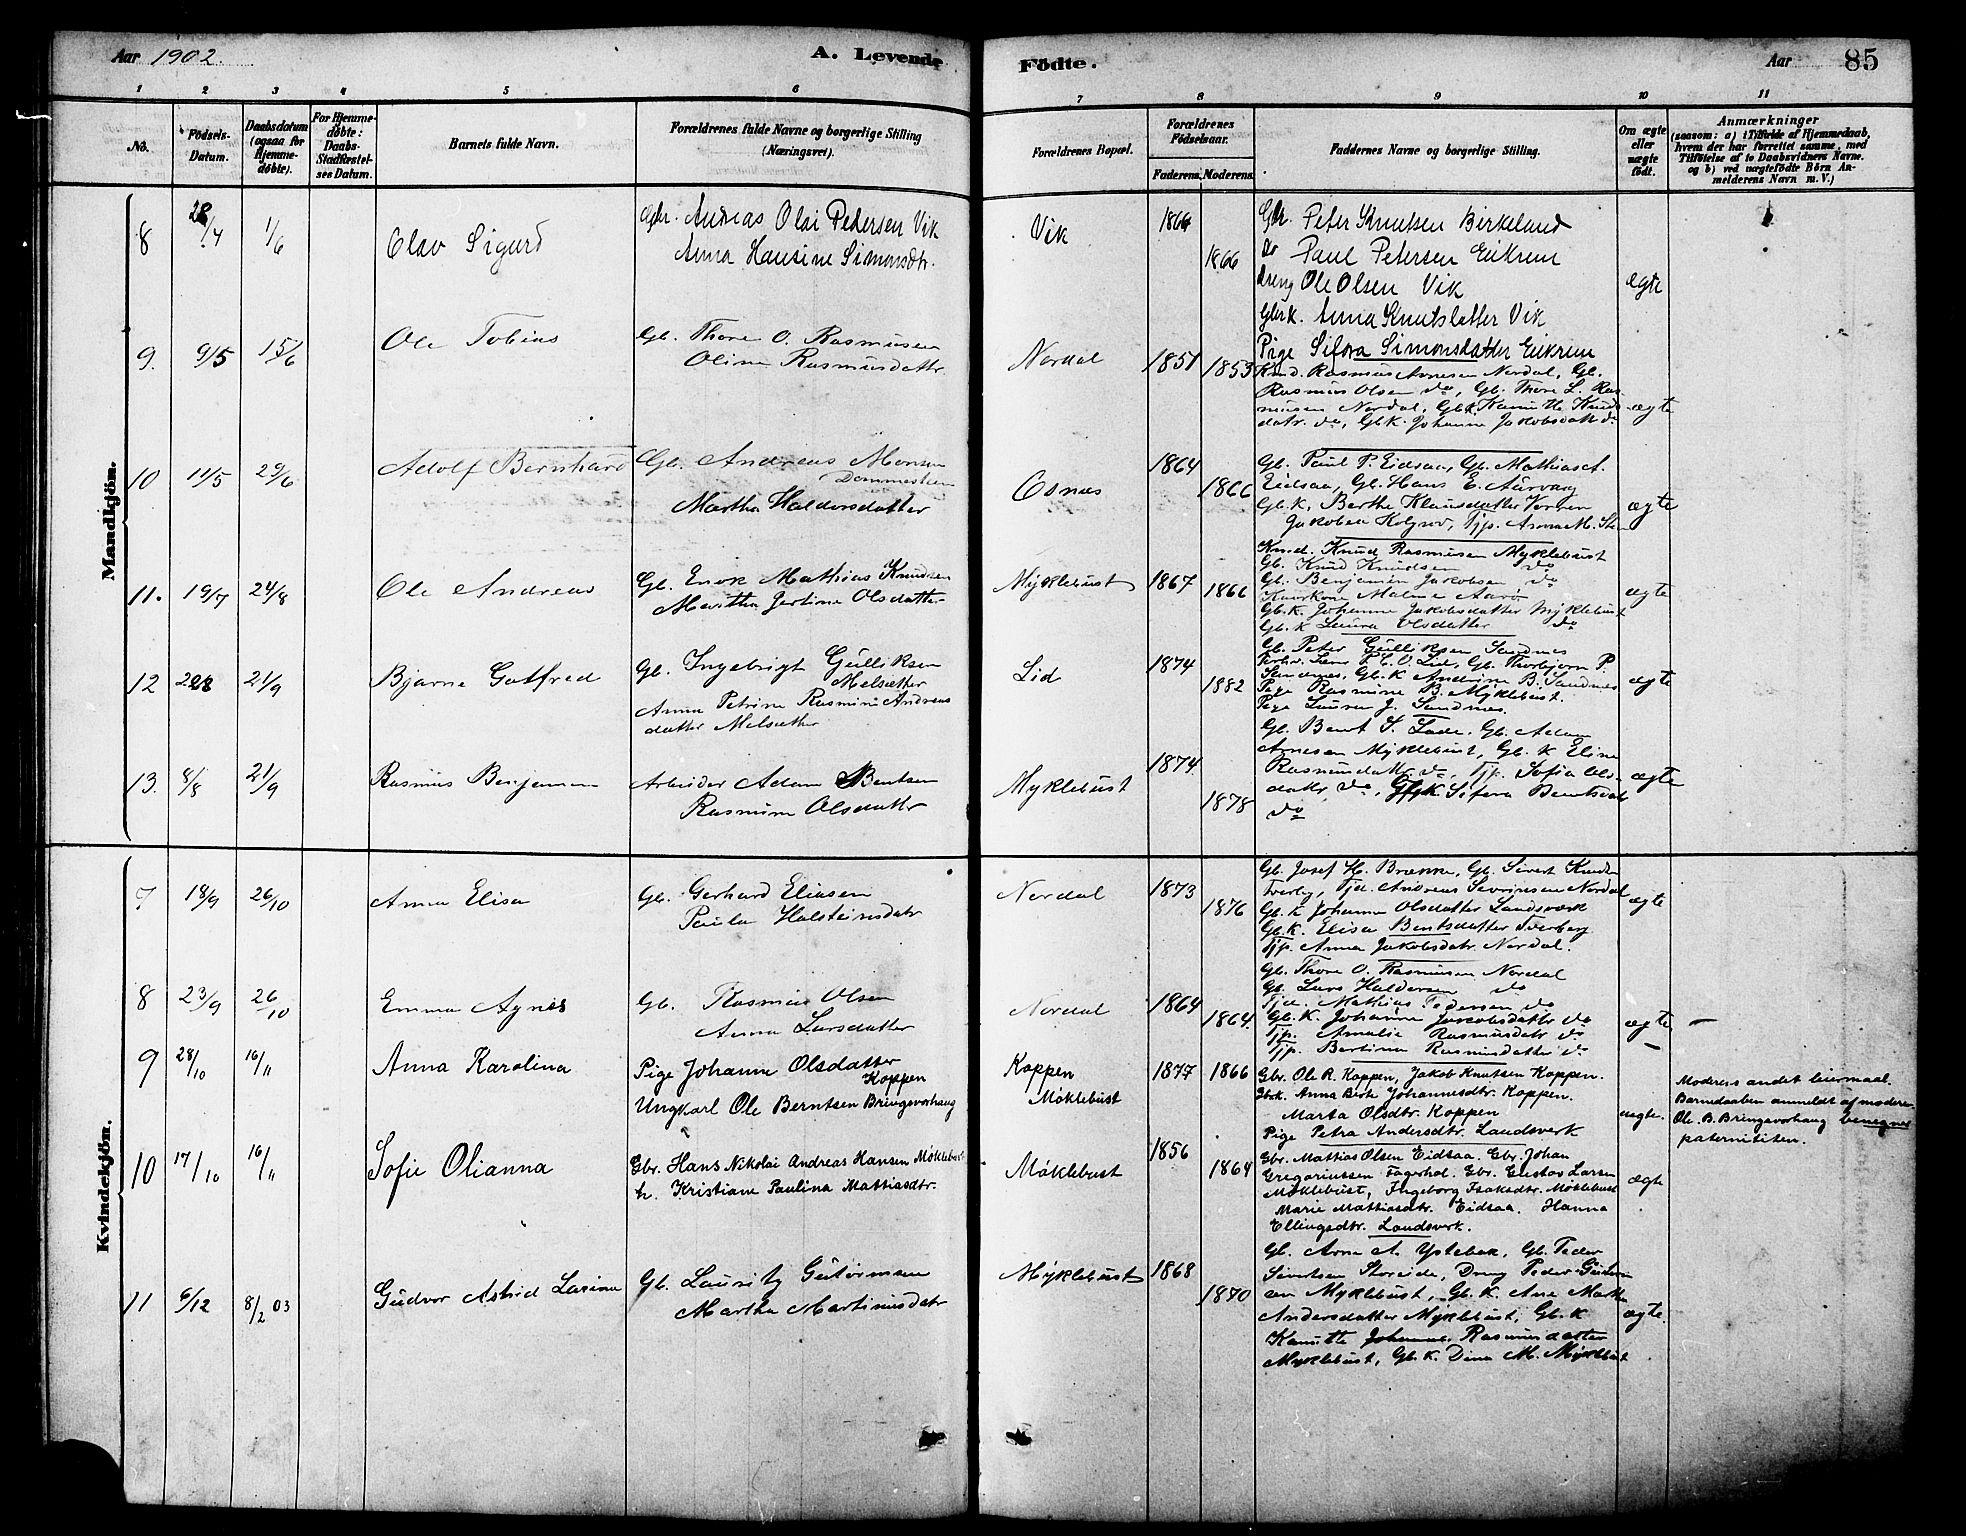 Aar 1902.
A. Levende Födte.
Aar 85
1 2 3 4 5 6 7 8 9 10 11
No.
Födsels-Datum.
Daabsdatum (ogsaa for Hjemmedöbte).
For Hjemmedöbte: Daabs-Stadfæstelses Datum.
Barnets fulde Navn.
Forældrenes fulde Navne og borgerlige Stilling (Næringsvei).
Forældrenes Bopæl.
Forældrenes Födselsaar.
Faderens. Moderens.
Faddernes Navne og borgerlige Stilling.
Om ægte eller uægte födt.
Anmærkninger
(saasom: a) i Tilfælde af Hjemmedaab,
hvem der har forrettet samme, med
Tilföielse af to Daabsvidners Navne.
og b) ved uægtefödte Börn An-
melderens Navn m. V.)
Mandkjön.
8 28/4 1/6 Olav Sigurd
Gbr. Andreas Olai Pedersen Vik
Anna Hansine Simonsdtr.
Vik 1866 1866
Gbr. Peter Knutsen Birkeland
do Paul Petersen Eikrem
dreng Ole Olsen Vik
Gbrk. Anna Knutsdatter Vik
Pige Sifora Simonsdatter Eikrem
ægte
9. 9/5 15/6 Ole Tobias
Gb. Thore O. Rasmusen
Oline Rasmusdattr.
Nordal 1851 1853
Knd. Rasmus Arnesen Nordal, Gb.
Rasmus Olsen do, Gb. Thore L. Ras
musen Nordal, Gbk. Kanutte Knuds
datr. do, Gbk. Johanne Jakobsdatt do
ægte
10 11/5 29/6 Adolf Bernhard
Gb. Andreas Monsen
Martha Haldorsdatter
Osnes 1864 1866
Gb. Paul P. Eidsaa, Gb. Mathias A.
Eidsaa, Gb. Hans E. Aurvaag
Gb.K. Berthe Klausdatter
Jakobea, Tjp. Anna M.
ægte
11. 19/7 24/8 Ole Andreas
Gb. Enok Mathias Knudsen
Martha Jertine Olsdatter
Myklebust 1867 1866
Knud. Knud Rasmusen Myklebust
Gb. Knud Knudsen do
Gb. Benjamin Jakobsen do
Malene Aarø
Gb.K. Johanne Jakobsdatter Myklebust
Gb.K Laura Olsdatter do
ægte
12 21/9 Bjarne Gotfred
Gb. Ingebrigt Gulliksen
Melsæther
Anna Petrine Rasmine Andreas
datter Melsæther
Lid 1874 1882
Gb. Peter Gulliksen Sandnes
Lid, Gb. Thorbjørn P.
Sandnes, Gb.K Andrine B. Sandnes
Pige Rasmine B. Myklebust.
Pige Laura J. Sandnes.
ægte
13. 8/8 21/9 Rasmus Benjamin
Arbeider Adam Bentsen
Rasmine Olsdattr
Myklebust 1874 1878
Gb. Bent S. Lade. Gb. Adam
Arnesen Myklebust, Gb. K Eline
Rasmusdattr do, Tjp. Sofia Ols-
datr do, Gbk. Sifora Bentsdatt
do
ægte
Kvindekjön.
7 18/9 26/10 Anna Elisa
Gb. Gerhard Eliasen
Paula Halsteinsdatr
Nordal 1873 1876
Gb. Josef H. Brænne, Gb. Sivert Knudsen
Tverby, Tjd. Andreas Sevrinsen Nordal
Gb.K Johanne Olsdatter Landsværk
Gb.K. Elisa Bentsdatter Tverberg
Tjp. Anna Jakobsdatr. Nordal.
ægte
8 23/9 26/10 Emma Agnes
Gb. Rasmus Olsen
Anna Larsdatter
Nordal 1864 1864
Gb. Thore O. Rasmusen Nordal
Gb. Lars Haldorsen do
Tjd. Mathias Pedersen do
Gb.K. Johanne Jakobsdattr do
Tjp. Amalie Rasmusdatr do
Tjp. Bertine Rasmusdatter do
ægte —
9 28/10 16/11 Anna Karolina
Pige Johanne Olsdatter
Koppen
Ungkarl Ole Berntsen Bringsvorhaug
Koppen
Möklebust
1877 1866
Gbr. Ole R. Koppen, Jakob Knutsen Koppen.
Gbrk. Anna Birte Johannesdtr. Koppen.
Marta Olsdtr. Koppen
Pige Petra Andersdtr. Landsverk
uægte.
Moderens andet leiermaal.
Barnedaaben anmeldt af moderen.
Ole B. Bringsvorhaug benegner
paternititen.
10 17/10 16/11 Sofie Olianna
Gbr. Hans Nikolai Andreas Hansen Möklebust
h. Kristiane Paulina Mattiasdtr.
Möklebust 1856 1864
Gbr. Mathias Olsen Eidsaa. Gbr. Johan
Gregoriussen Fagerhol. Gbr. Gustav Larsen
Möklebust, Ingeborg Isaksdtr. Möklebust
Marie Mattiasdtr. Eidsaa. Hanna
Ellingsdtr. Landsverk.
ægte
11 6/12 8/2 03 Gudvor Astrid Larine
Gb. Lauritz Gutormsen
Martha Martinusdatr
Myklebust 1868 1870
Gb. Arne A. Ystebøe, Gb. Peder
Sivertsen Storeide, Dreng Peder Gutorm
sen Myklebust, Gb.K. Ane Marthe
Andersdatter Myklebust, Gb. K
Kanutte Johanne Rasmusdatter
Myklebust, Gb.K. Dina M. Myklebust
ægte.